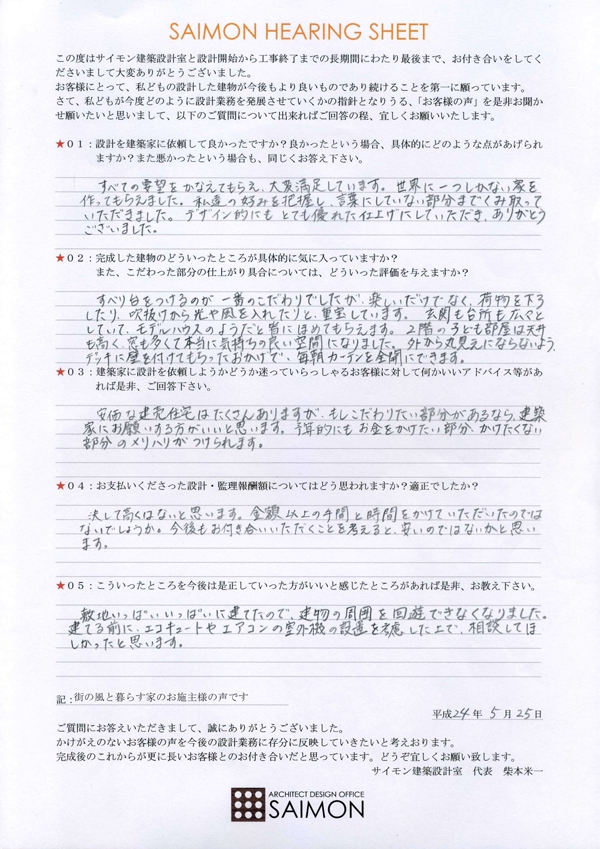 SAIMON HEARING SHEET
この度はサイモン建築設計室と設計開始から工事終了までの長期間にわたり最後まで、お付き合いをしてく
ださいまして大変ありがとうございました。
お客様にとって、私どもの設計した建物が今後もより良いものであり続けることを第一に願っています。
さて、私どもが今度どのように設計業務を発展させていくかの指針となりうる、「お客様の声」を是非お聞か
せ願いたいと思いまして、以下のご質問について出来ればご回答の程、宜しくお願いいたします。
★01：設計を建築家に依頼して良かったですか？良かったという場合、具体的にどのような点があげられ
ますか？また悪かったという場合も、同じくお答え下さい。
すべての要望をかなえてもらえ、大変満足しています。世界に一つしかない家を
作ってもらえました。私達の好みを把握し、言葉にしていない部分までくみ取って
いただきました。デザイン的にもとても優れた仕上げにしていただき、ありがとう
ございました。
★02：完成した建物のどういったところが具体的に気に入っていますか？
また、こだわった部分の仕上がり具合については、どういった評価を与えますか？
すべり台をつけるのが一番のこだわりでしたが、楽しいだけでなく、荷物を下ろ
したり、吹抜けから光や風を入れたりと、重宝しています。玄関も台所も広々と
していて、モデルハウスのようだと皆にほめてもらえます。2階の子ども部屋は天井
も高く、窓も多くて本当に気持ちの良い空間になりました。外から丸見えにならないよう、
デッキに壁を付けてもらったおかげで、毎朝カーテンを全開にできます。
★03：建築家に設計を依頼しようかどうか迷っていらっしゃるお客様に対して何かいいアドバイス等があ
れば是非、ご回答下さい。
安価な建売住宅はたくさんありますが、もしこだわりたい部分があるなら、建築
家にお願いする方がいいと思います。予算的にもお金をかけたい部分、かけたくない
部分のメリハリがつけられます。
★04：お支払いくださった設計・監理報酬額についてはどう思われますか？適正でしたか？
決して高くはないと思います。金額以上の手間と時間をかけていただいたのでは
ないでしょうか。今後もお付き合いいただくことを考えると、安いのではないかと思い
ます。
★05：こういったところを今後は是正していった方がいいと感じたところがあれば是非、お教え下さい。
敷地いっぱいいっぱいに建てたので、建物の周囲を回遊できなくなりました。
建てる前に、エコキュートやエアコンの室外機の設置を考慮した上で、相談してほ
しかったと思います。
記：街の風と暮らす家のお施主様の声です
平成24年 5月25日
ご質問にお答えいただきまして、誠にありがとうございました。
かけがえのないお客様の声を今後の設計業務に存分に反映していきたいと考えおります。
完成後のこれからが更に長いお客様とのお付き合いだと思っています。どうぞ宜しくお願い致します。
サイモン建築設計室　代表　柴本米一
ARCHITECT DESIGN OFFICE
SAIMON